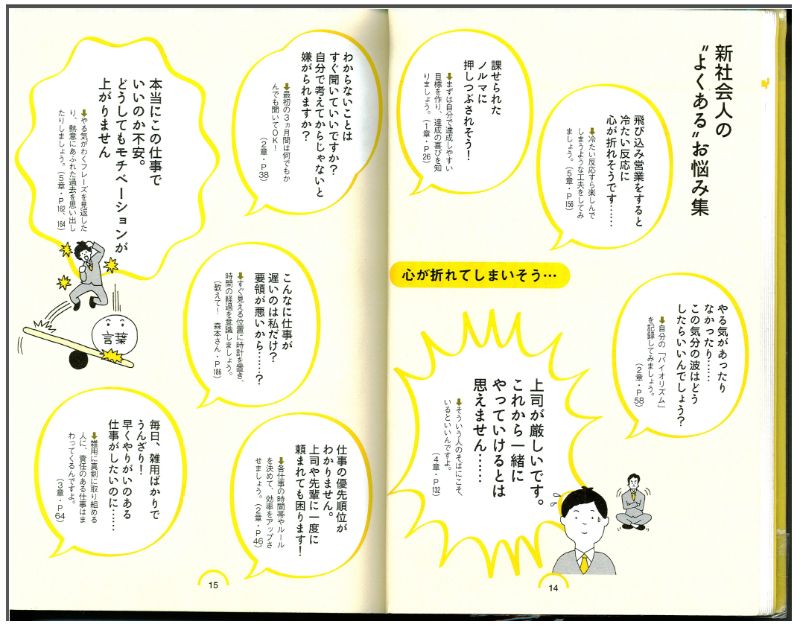 新社会人の
“よくある”お悩み集
飛び込み営業をすると
冷たい反応に
心が折れそうです……
↓冷たい反応すら楽しんで
しまうような工夫をしてみ
ましょう。(5章・P156)
課せられた
ノルマに
押しつぶされそう！
↓まずは自分で達成しやすい
目標を作り、達成の喜びを知
りましょう。(1章・P26)
心が折れてしまいそう…
やる気があったり
なかったり……
この気分の波はどう
したらいいんでしょう？
↓自分の「バイオリズム」
を記録してみましょう。
(2章・P58)
上司が厳しいです。
これから一緒に
やっていけるとは
思えません……
↓そういう人のそばにこそ、
いるといいんですよ。
(4章・P132)
14
わからないことは
すぐ聞いていいですか？
自分で考えてからじゃないと
嫌がられますか？
↓最初の3ヵ月間は何でもか
んでも聞いてOK！
(2章・P38)
本当にこの仕事で
いいのか不安。
どうしてもモチベーションが
上がりません
↓やる気がわくフレーズを見返した
り、熱意にあふれた過去を思い出し
たりしましょう。(5章・P162、164)
こんなに仕事が
遅いのは私だけ？
要領が悪いから……？
↓すぐ見える位置に時計を置き、
時間の経過を意識しましょう。
(教えて！ 森本さん・P186)
言葉
仕事の優先順位が
わかりません。
上司や先輩に一度に
頼まれても困ります！
↓各仕事の時間帯やルール
を決めて、効率をアップさ
せましょう。(2章・P46)
毎日、雑用ばかりで
うんざり！
早くやりがいのある
仕事がしたいのに……
↓雑用に真剣に取り組める
人に、責任のある仕事はま
わってくるんですよ。
(3章・P64)
15